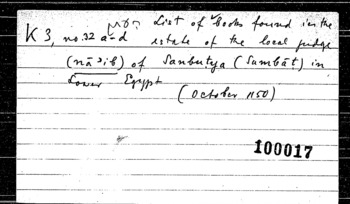 List of Books found in the
K 3, no. 32 a-d estate of the local judge
(nā'ib) of Sanbutya (Sumbāt) in
Lower Egypt
(October 1150)
100017